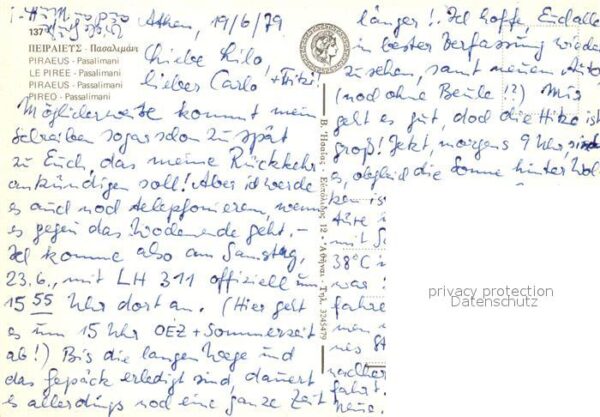 Athen, 19/6/79
137
ΠΕΙΡΑΙΕΥΣ - Πασαλιμάνι
PIRAEUS - Pasalimani
LE PIREE - Pasalimani
PIRAEUS - Passalimani
PIREO - Passalimani
Liebe Lilo,
lieber Carlo + Fritzi!
Möglicherweise kommt mein
Schreiben sogar schon zu spät
zu Euch, das meine Rückkehr
ankündigen soll! Aber ich werde
es auch noch telephonieren, wenn
es gegen das Wochenende geht. -
Ich komme also am Samstag,
23.6., mit LH 311 offiziell um
15 55 Uhr dort an. (Hier geht
es um 15 Uhr OEZ + Sommerzeit
ab!) Bis die langen Wege und
das Gepäck erledigt sind, dauert
es allerdings noch eine ganze Zeit
Αθήναι - Τηλ. 3245479
länger!. Ich hoffe, Euch alle
in bester Verfassung wieder
zu sehen, samt neuem Auto
(noch ohne Beule!?) Mir
geht es gut, doch die Hitze ist
groß! Jetzt, morgens 9 Uhr, sind
es, obgleich die Sonne hinter Wol-
ken ist
mit
38°C
war
fahre
men
nes
welcher
fahrt.
privacy protection
Datenschutz